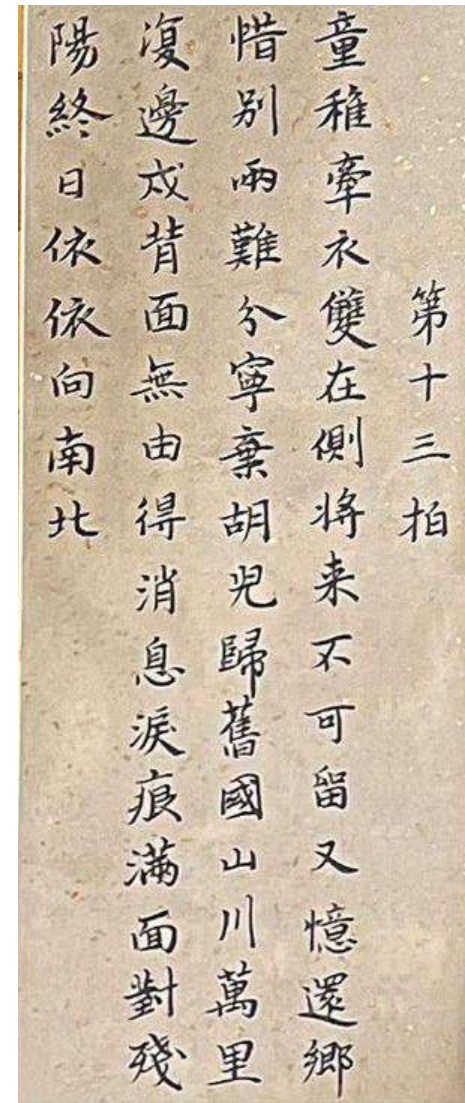 第十三拍
童稚牽衣雙在側将来不可留又憶還鄉
惜别兩難分寧棄胡児歸舊國山川萬里
復邊戍背面無由得消息淚痕滿面對殘
陽終日依依向南北